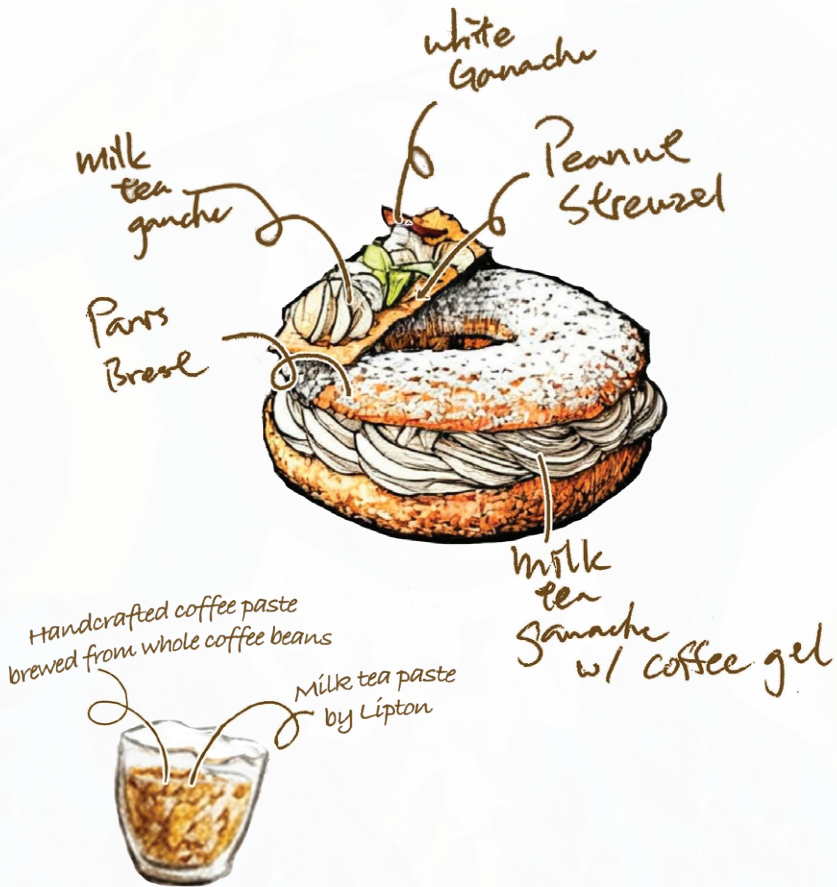 white
Ganache
milk
tea
ganache
Peanut
Streuzel
Paris
Brest
milk
tea
ganache
w/ coffee gel
Handcrafted coffee paste
brewed from whole coffee beans
Milk tea paste
by Lipton